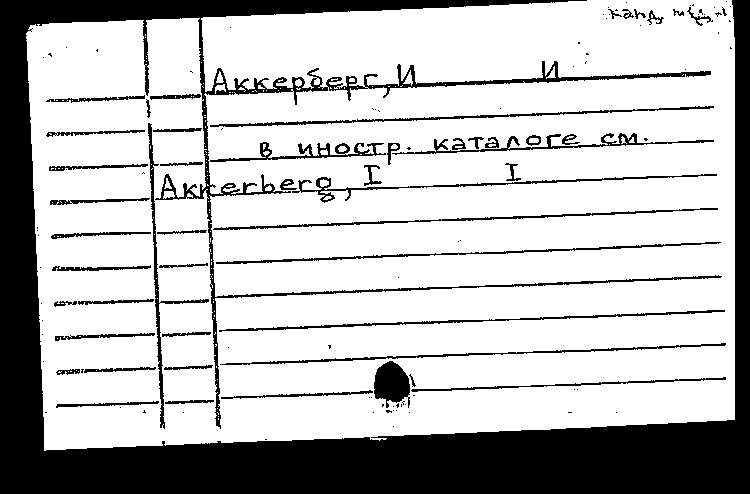 канд. мед. н
Аккерберг, И И
в иностр. каталоге см.
Akkerberg, I I